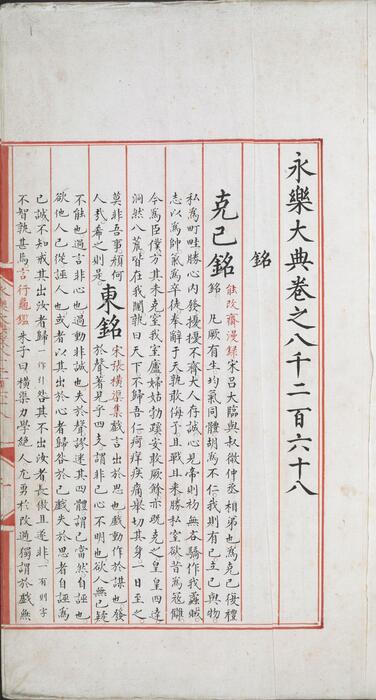 永樂大典卷之八千二百六十八
銘
克己銘 能改齋漫録 宋呂大臨與叔微仲丞相弟也為克己復禮
銘 凡厥有生均氣同體胡為不仁我則有己立己與物
私為町畦勝心内發擾擾不齊大人存誠心見帝則初無吝驕作我蟊賊
志以為帥氣為卒徒奉辭于天孰敢侮予且戰且来勝私窒慾昔為寇讎
今為臣僕方其未克窒我室廬婦姑勃蹊安取厥餘亦既克之皇皇四達
洞然八荒皆在我闥孰曰天下不歸吾仁疴痒疾痛舉切其身一日至之
莫非吾事顏何
人哉希之則是 東銘 宋張横渠集 戲言出於思也戲動作於謀也發
於聲著見乎四支謂非己心不明也欲人無己疑
不能也過言非心也過動非誠也失於聲謬迷其四體謂己當然自誣也
欲他人己從誣人也或者以其出於心者歸咎於己戲失於思者自誣為
己誠不知戒其出汝者歸一作引咎其不出汝者長傲且遂非一有則字
不智孰甚焉 言行龜鑑 朱子曰横渠力學絶人尤勇於改過獨謂於戲無